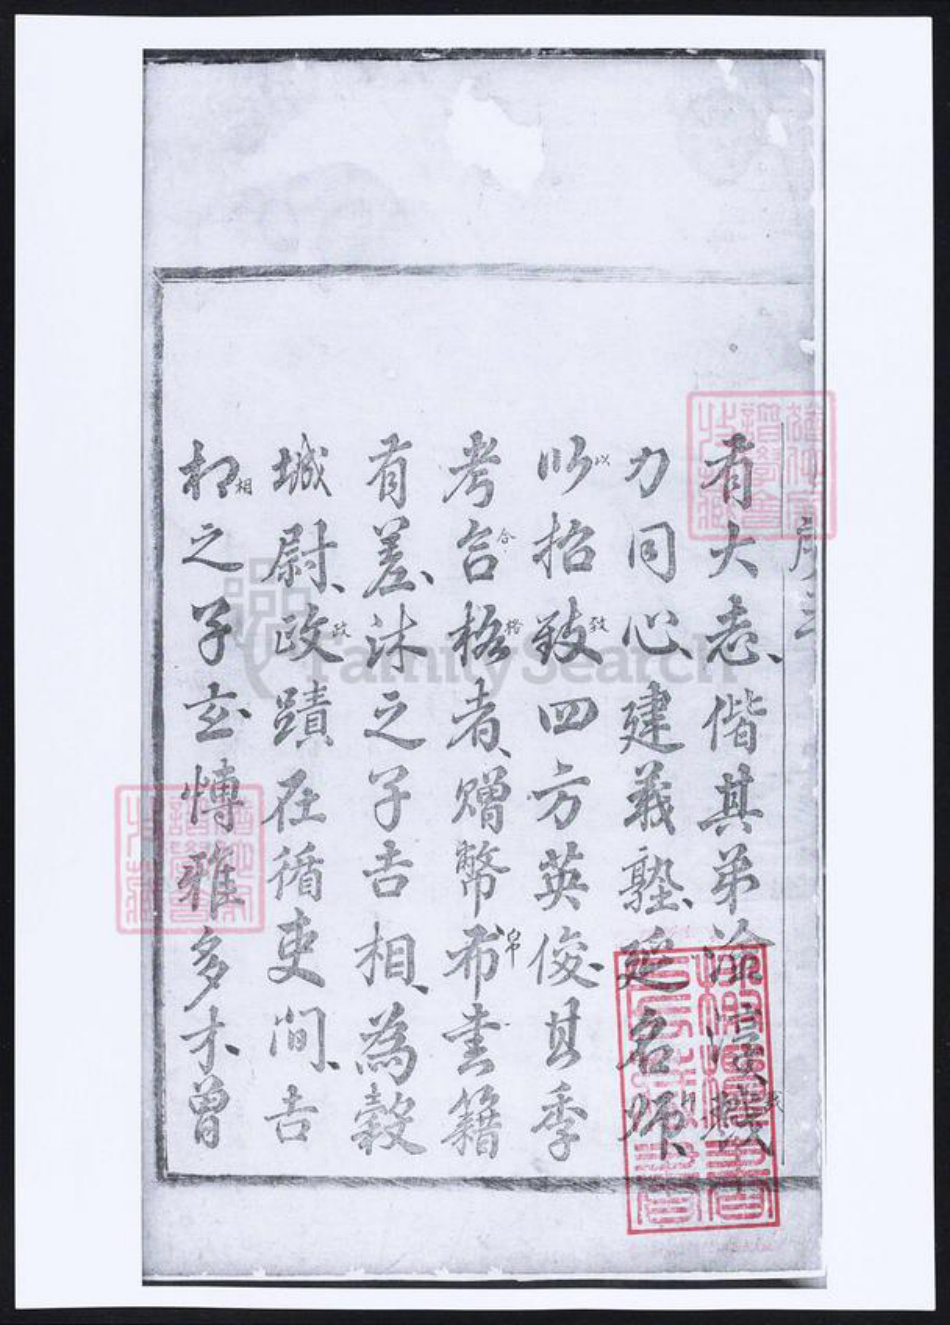 有大志偕其弟淦
力同心建義塾延名師
以招致四方英俊其季
考合格者贈幣布書籍
有差沐之子吉相為穀
城尉政蹟在循吏間吉
相之子玄慱雅多才曾
以
致
合
格
帛
政
相
FamilySearch